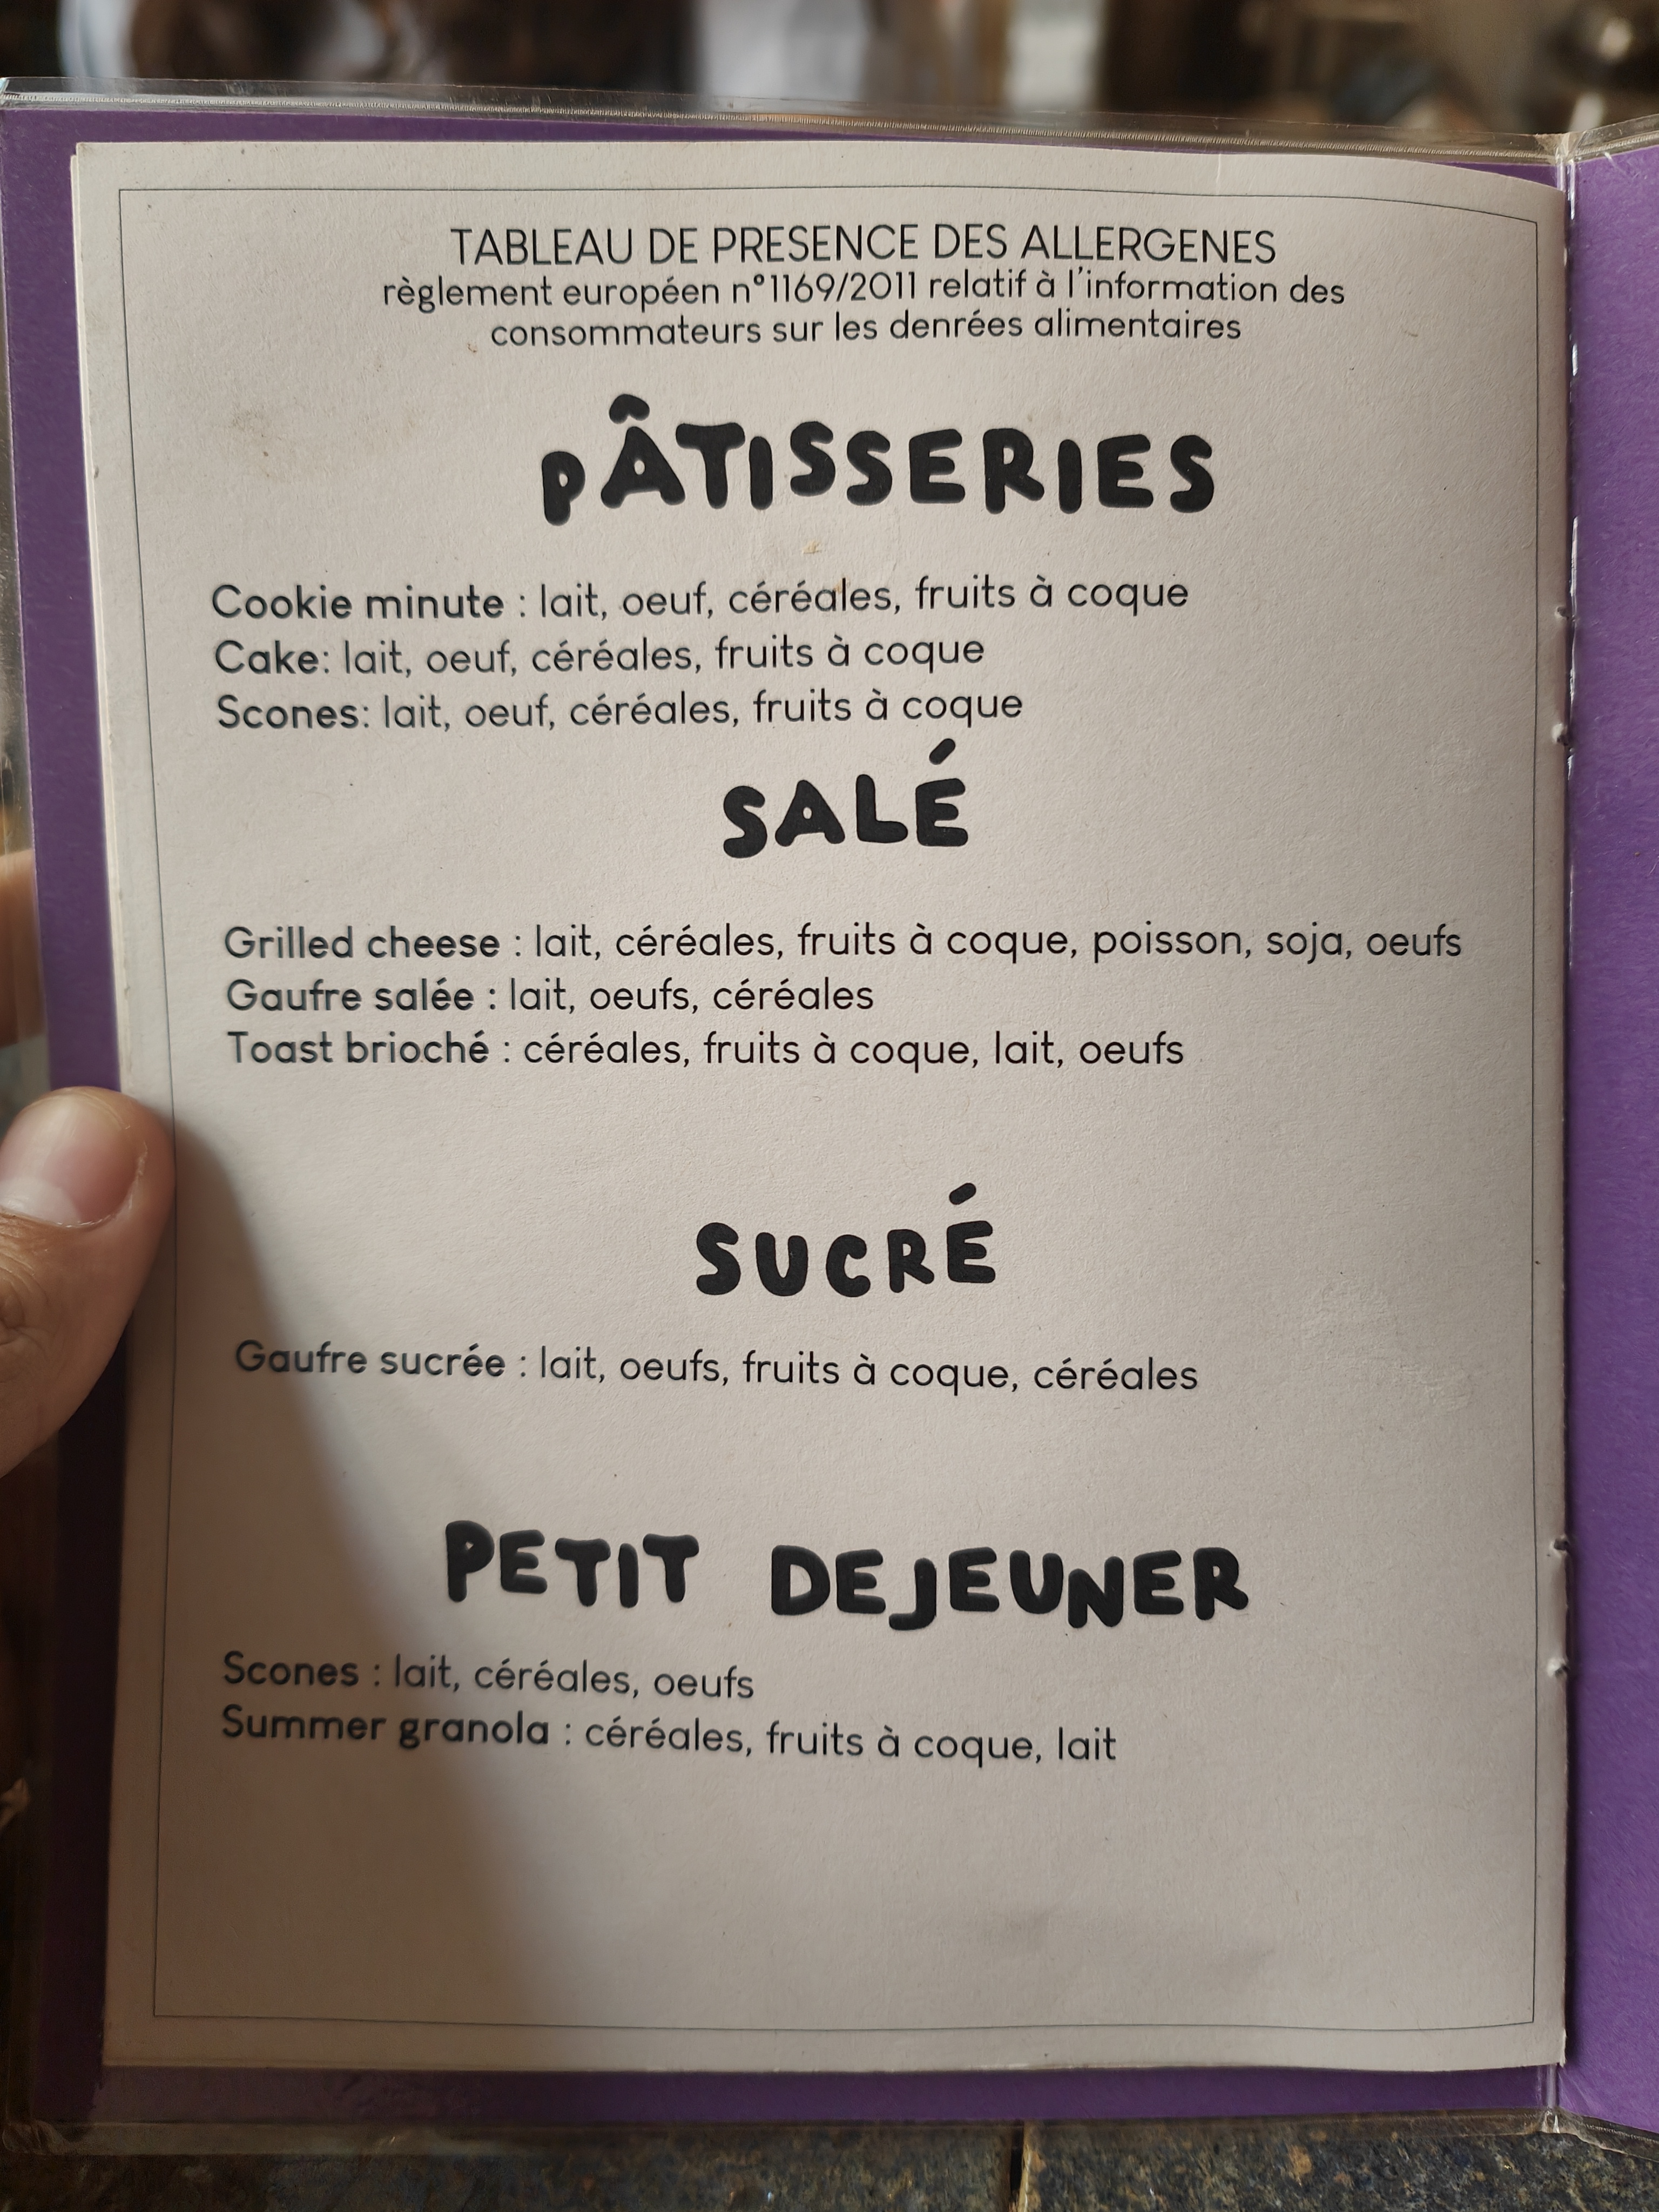 TABLEAU DE PRESENCE DES ALLERGENES
règlement européen n°1169/2011 relatif à l'information des
consommateurs sur les denrées alimentaires
PÂTISSERIES
Cookie minute : lait, oeuf, céréales, fruits à coque
Cake: lait, oeuf, céréales, fruits à coque
Scones: lait, oeuf, céréales, fruits à coque
SALÉ
Grilled cheese : lait, céréales, fruits à coque, poisson, soja, oeufs
Gaufre salée : lait, oeufs, céréales
Toast brioché : céréales, fruits à coque, lait, oeufs
SUCRÉ
Gaufre sucrée : lait, oeufs, fruits à coque, céréales
PETIT DEJEUNER
Scones : lait, céréales, oeufs
Summer granola : céréales, fruits à coque, lait